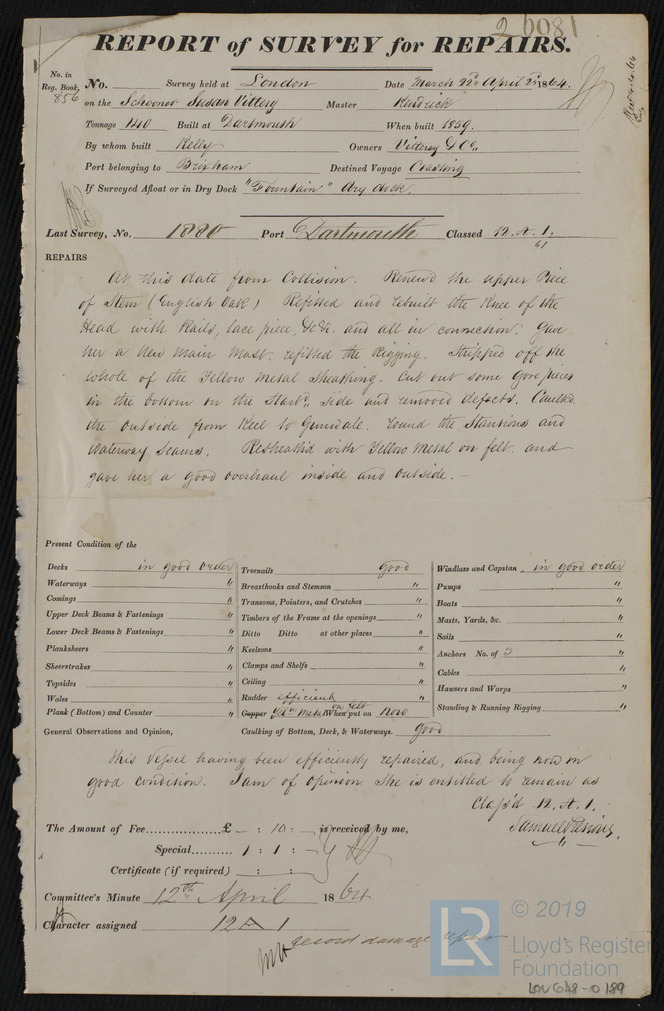 26081
REPORT of SURVEY for REPAIRS.
No. in Reg. Book, 856
No. Survey held at London Date March 22nd April 2nd 1864.
on the Schooner Susan Vittery Master Kendrick
Tonnage 140 Built at Dartmouth When built 1859.
By whom built Kelly Owners Vittery & Co.
Port belonging to Brixham Destined Voyage Coasting
If Surveyed Afloat or in Dry Dock "Fountain" Dry dock.
Last Survey, No. 1880 Port Dartmouth Classed 12.A.1.
61
REPAIRS
At this date from Collision. Renew'd the upper Piece
of Stem (English Oak) Refitted and rebuilt the Knee of the
Head with Rails, lace piece, &c &c. and all in connection. Gave
her a New main Mast. refitted the Rigging. Stripped off the
whole of the Yellow Metal Sheathing. Cut out some Gore pieces
in the bottom on the Starbd. side and removed defects. Caulk'd
the outside from Keel to Gunwale. round the Stantions and
Waterway Seams. Resheath'd with Yellow Metal on felt. and
gave her a good overhaul inside and outside. —
Present Condition of the
Decks in good order
Waterways "
Comings "
Upper Deck Beams & Fastenings "
Lower Deck Beams & Fastenings "
Planksheers "
Sheerstrakes "
Topsides "
Wales "
Plank (Bottom) and Counter "
Treenails good
Breasthooks and Stemson "
Transoms, Pointers, and Crutches "
Timbers of the Frame at the openings "
Ditto Ditto at other places "
Keelsons "
Clamps and Shelfs "
Ceiling "
Rudder efficient "
Copper Yellow Metal on felt When put on Now
Caulking of Bottom, Deck, & Waterways. Good
Windlass and Capstan in good order
Pumps "
Boats "
Masts, Yards, &c. "
Sails "
Anchors No. of 3 "
Cables "
Hawsers and Warps "
Standing & Running Rigging "
General Observations and Opinion,
This Vessel having been efficiently repaired, and being now in
good condition. I am of opinion She is entitled to remain as
Class'd 12.A.1.
The Amount of Fee £ — : 10 : — is received by me,
Special 1 : 1 : —
Certificate (if required) : :
Committee's Minute 12th April 1864
Character assigned 12 A 1
record damage repair
LR
© 2019
Lloyd's Register
Foundation